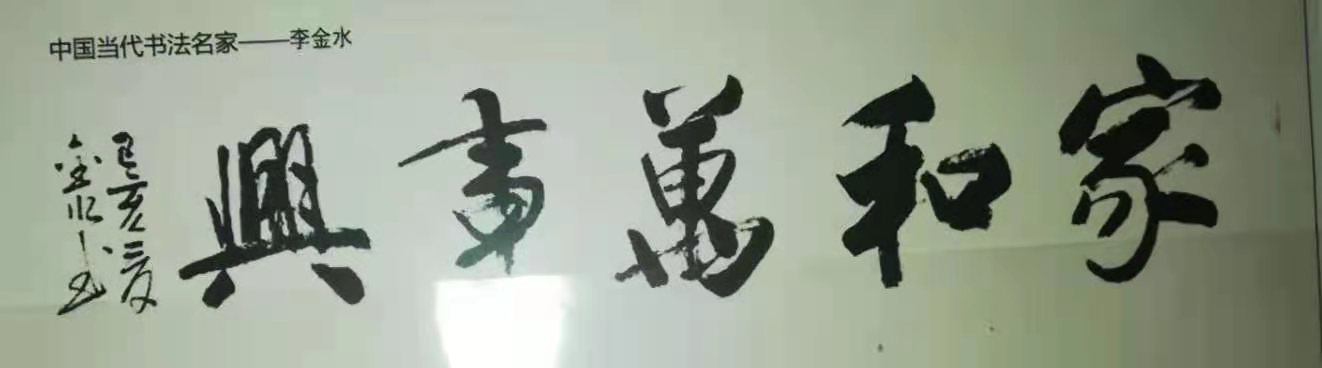 中国当代书法名家——李金水
家和萬事興
己亥夏
金水书